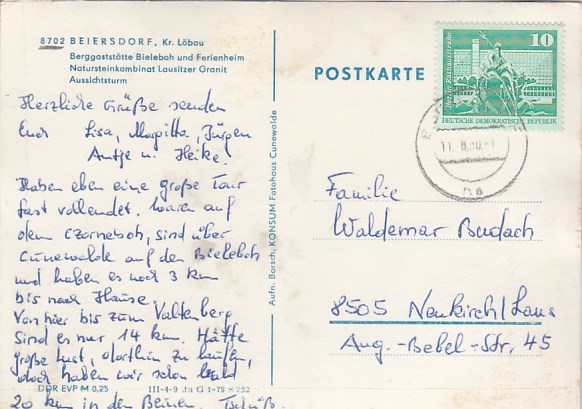 8702 BEIERSDORF, Kr. Löbau
Berggaststätte Bieleboh und Ferienheim
Natursteinkombinat Lausitzer Granit
Aussichtsturm
Herzliche Grüße senden
Euch Lisa, Margitta, Jürgen
Antje u. Heike!
Haben eben eine große Tour
fast vollendet. Waren auf
dem Czorneboh, sind über
Cunewalde auf den Bieleboh
und haben es noch 3 km
bis nach Hause.
Von hier bis zum Valtenberg
sind es nur 14 km. Hätte
große Lust, dorthin zu laufen,
doch haben wir schon bald
20 km in den Beinen. Tschüß
DDR EVP M 0,25 III-4-9 Jа G 1-79 S 252
Aufn. Borsch, KONSUM Fotohaus Cunewalde
POSTKARTE
10
DEUTSCHE DEMOKRATISCHE REPUBLIK
11. 8.80.-1
Familie
Waldemar Budach
8505 Neukirch/Laus
Aug.-Bebel-Str. 45